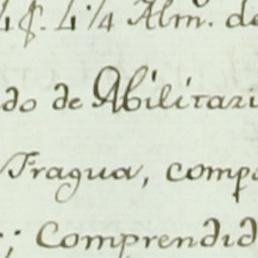 4 ₲. 4 1/4 Alm.s de
do de Abilitari
Fragua, compo
; Comprendid